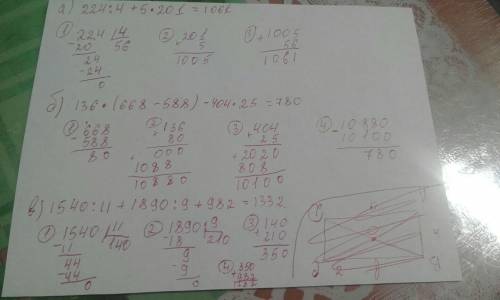 а) 224:4+5·201=1061
① 224 | 4 ② 201 ③ 1005
- 20 56 × 5 + 56
24 1005 1061
-24
0
б) 136·(668-588)-404·25=780
① 668 ② 136 ③ 404 ④ - 10880
- 588 × 80 × 25 10100
80 000 + 2020 780
+ 1088 808
10880 10100
в) 1540:11+1890:9+982=1332
① 1540 | 11 ② 1890 | 9 ③ 140
- 11 140 - 18 210 + 210
44 9 350
- 44 - 9 ④ 350
0 0 + 982
1332